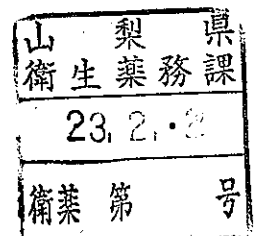 山梨県
衛生薬務課
23. 2. ・2
衛薬第 号